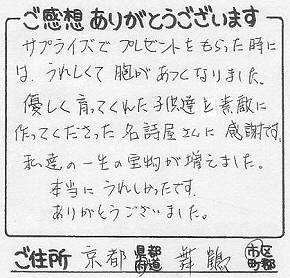 ご感想ありがとうございます
サプライズでプレゼントをもらった時に
は、うれしくて胸があつくなりました。
優しく育ってくれた子供達と素敵に
作ってくださった名詩屋さんに感謝です。
私達の一生の宝物が増えました。
本当にうれしかったです。
ありがとうございました。
ご住所 京都 都道府県 舞鶴 市区町郡